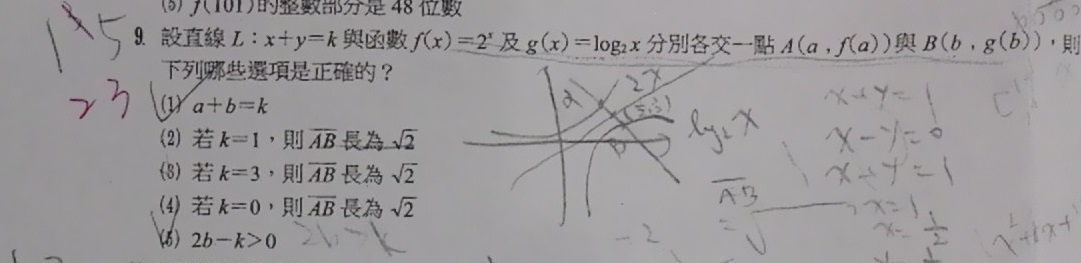 (5) f(101)的整數部分是 48 位數
9. 設直線 L：x+y=k 與函數 f(x)=2ˣ 及 g(x)=log₂x 分別各交一點 A(a , f(a))與 B(b , g(b))，則
下列哪些選項是正確的？
(1) a+b=k
(2) 若 k=1，則 AB 長為 √2
(3) 若 k=3，則 AB 長為 √2
(4) 若 k=0，則 AB 長為 √2
(5) 2b-k>0
2x
log₂x
x+y=1
x-y=0
x+y=1
AB
x=1
x=1/2
-2